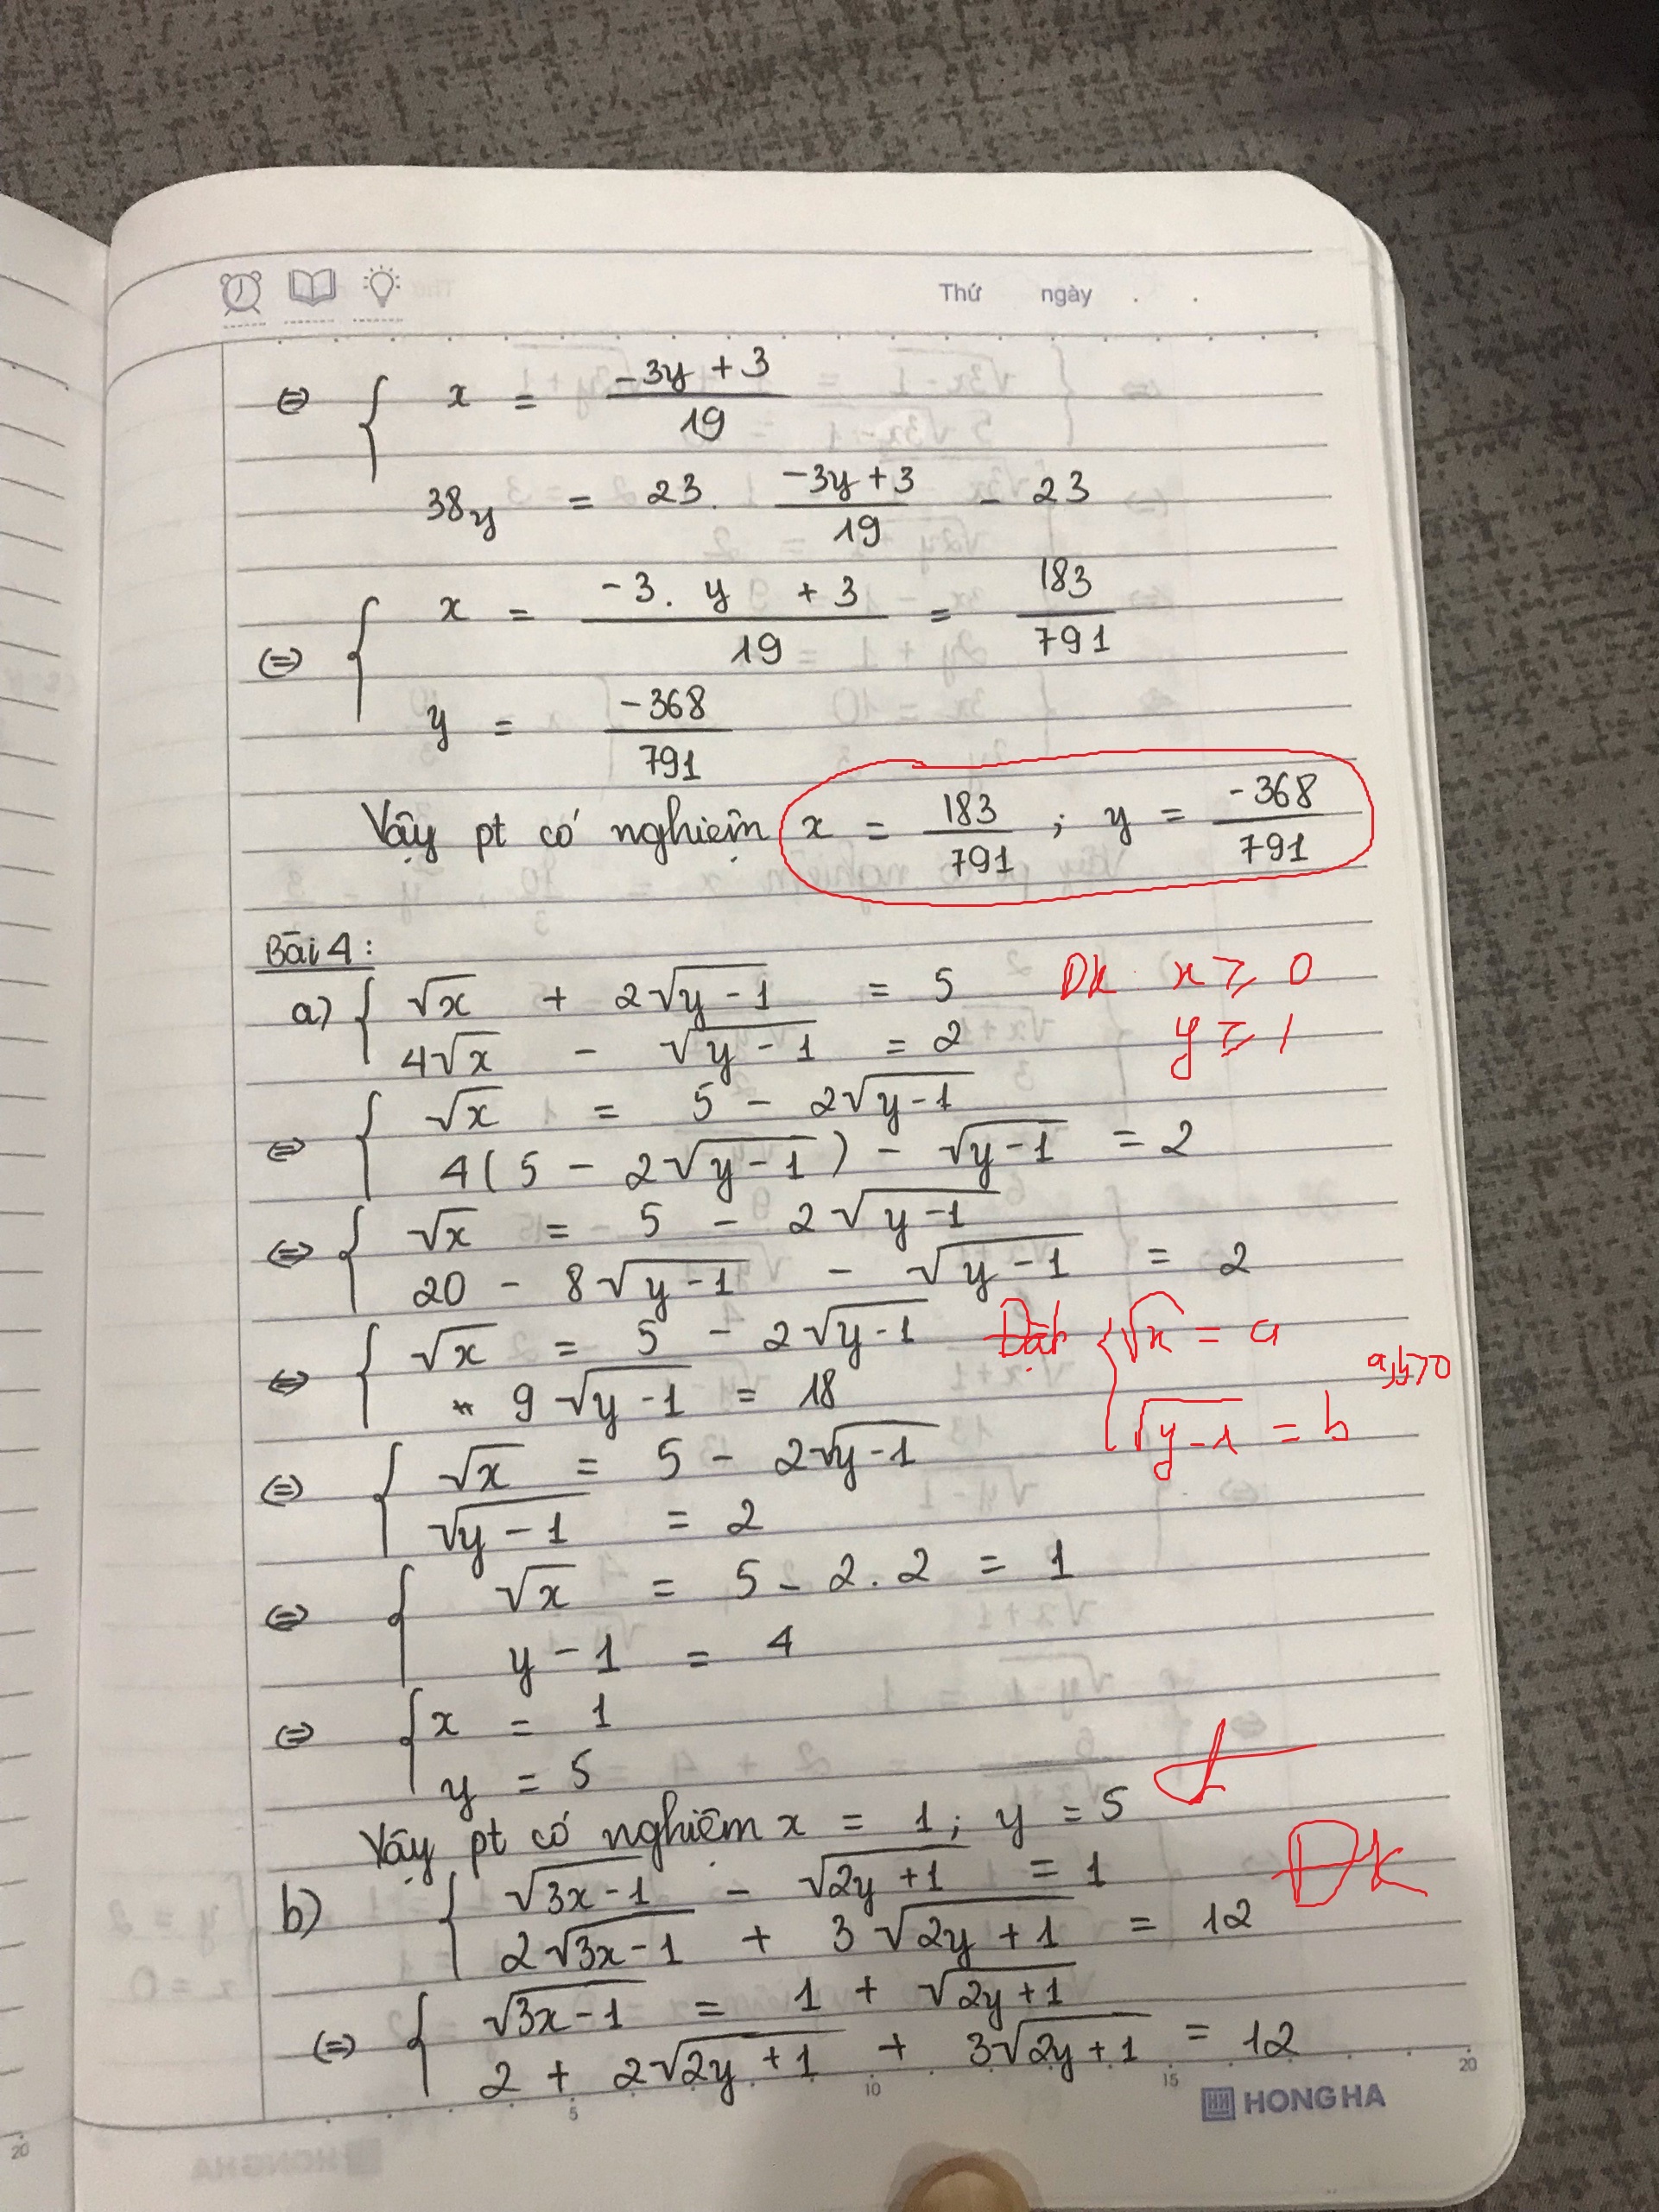 Thứ ngày . .
⇔ { x = (-3y + 3)/19
38y = 23. (-3y + 3)/19 - 23
⇔ { x = (-3. y + 3)/19 = 183/791
y = -368/791
Vậy pt có nghiệm x = 183/791 ; y = -368/791
Bài 4:
a) { √x + 2√(y - 1) = 5 Đk x ≥ 0
4√x - √(y - 1) = 2 y ≥ 1
⇔ { √x = 5 - 2√(y-1)
4(5 - 2√(y-1)) - √(y-1) = 2
⇔ { √x = 5 - 2√(y-1)
20 - 8√(y-1) - √(y-1) = 2
⇔ { √x = 5 - 2√(y-1) Đặt { √x = a
9√(y-1) = 18 a,b>0
√(y-1) = b
⇔ { √x = 5 - 2√(y-1)
√(y-1) = 2
⇔ { √x = 5 - 2.2 = 1
y - 1 = 4
⇔ { x = 1
y = 5
Vậy pt có nghiệm x = 1; y = 5
b) { √(3x-1) - √(2y+1) = 1 ĐK
2√(3x-1) + 3√(2y+1) = 12
⇔ { √(3x-1) = 1 + √(2y+1)
2 + 2√(2y+1) + 3√(2y+1) = 12
5 10 15 20
HONG HA
20